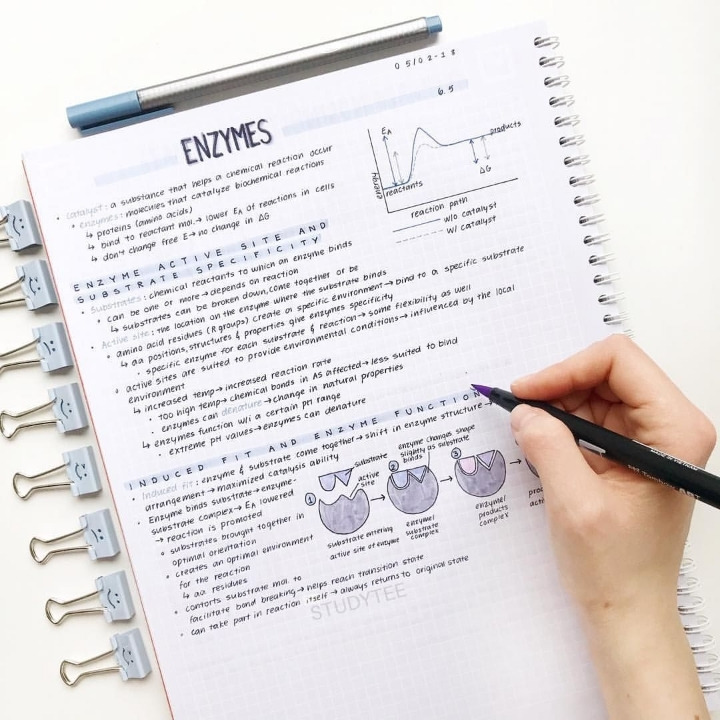 05/02-13
6.5
ENZYMES
catalyst: a substance that helps a chemical reaction occur
enzymes: molecules that catalyze biochemical reactions
↳ proteins (amino acids)
↳ bind to reactant mol.→ lower EA of reactions in cells
↳ don't change free E→no change in ΔG
EA
products
ΔG
energy
reactants
reaction path
w/o catalyst
w/ catalyst
ENZYME ACTIVE SITE AND
SUBSTRATE SPECIFICITY
Substrates: chemical reactants to which an enzyme binds
can be one or more→depends on reaction
↳ substrates can be broken down, come together or be
Active site: the location on the enzyme where the substrate binds
amino acid residues (R groups) create a specific environment→ bind to a specific substrate
↳ aa positions, structures & properties give enzymes specificity
specific enzyme for each substrate & reaction→ some flexibility as well
active sites are suited to provide environmental conditions→ influenced by the local
environment
↳ increased temp→increased reaction rate
too high temp→ chemical bonds in AS affected→less suited to bind
enzymes can denature→change in natural properties
↳ enzymes function w/i a certain pH range
extreme pH values→enzymes can denature
INDUCED FIT AND ENZYME FUNCTION
Induced fit: enzyme & substrate come together→ shift in enzyme structure→
arrangement → maximized catalysis ability
Enzyme binds substrate→enzyme-
substrate complex→ EA lowered
→ reaction is promoted
substrates brought together in
optimal orientation
creates an optimal environment
for the reaction
↳ aa residues
contorts substrate mol. to
facilitate bond breaking→ helps reach transition state
can take part in reaction itself → always returns to original state
1
substrate
active
site
substrate entering
active site of enzyme
2
enzyme changes shape
slightly as substrate
binds
enzyme/
substrate
complex
3
enzyme/
products
complex
STUDYTEE